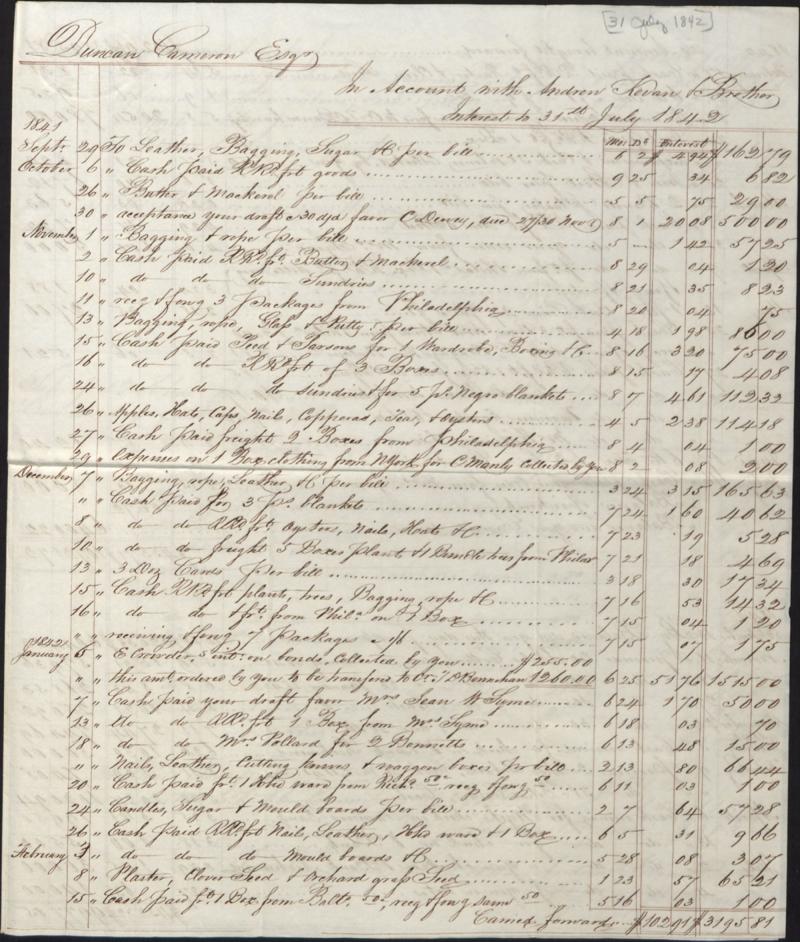 [31 July 1842]
Duncan Cameron Esqr
In Account with Andrew Kevan & Brother
Interest to 31st July 1842
1841 Mos Ds Interest
Sept. 29 To Leather, Bagging, Sugar &c per bill 6 2 $4 94 $162 79
October 6 " Cash paid RRd frt goods 9 25 34 6 82
26 " Butter & Mackerel per bill 5 5 75 29 00
30 " acceptance your draft @ 30 d/d favor C Dewey, due 27/30 Novr 8 1 20 08 500 00
November 1 " Bagging & rope per bill 5 — 1 42 57 25
2 " Cash paid RRd frt Butter & Mackerel 8 29 04 1 20
10 " do do do Sundries 8 21 35 8 23
11 " recg & fowg 3 packages from Philadelphia 8 20 04 75
13 " Bagging, rope, Glass & Putty per bill 4 18 1 98 86 00
15 " Cash paid Teed & Parsons for 1 Wardrobe, Boxing &c 8 16 3 20 75 00
16 " do do RRd frt of 3 Boxes 8 15 17 4 08
24 " do do do sundries & for 5 ps. Negro blankets 8 7 4 61 112 33
26 " Apples, Hats, Caps, Nails, Copperas, Tea, & oysters 4 5 2 38 114 18
27 " Cash paid freight 2 Boxes from Philadelphia 8 4 04 1 00
29 " expenses on 1 Box clothing from NYork for C Manly Collected by you 8 2 08 2 00
December 7 " Bagging, rope, Leather &c per bill 3 24 3 15 165 63
" " Cash paid for 3 ps. blankets 7 24 1 60 40 62
8 " do do RRd frt Oysters, Nails, Hats &c 7 23 19 5 28
10 " do do freight 5 Boxes plants & 1 Bundle trees from Philad 7 21 18 4 69
13 " 3 Doz Cards per bill 3 18 30 17 34
15 " Cash RRd frt plants, trees, Bagging, rope &c 7 16 53 14 32
16 " do do & frt. from Phila. on 1 Box 7 15 04 1 20
" " receiving & fowg 7 packages 7 15 07 1 75
1842
January 5 " E Crowder, s int. on bonds, Collected by you $255.00
" " this amt ordered by you to be transferd to Cr. T D Bennehan 1260.00 6 25 51 76 1515 00
7 " Cash paid your draft favor Mrs Jean W Syme 6 24 1 70 50 00
13 " do do RRd. frt 1 Box from Mrs Syme 6 18 03 70
18 " do do Mrs Pollard for 2 Bonnetts 6 13 48 15 00
" " Nails, Leather, Cutting knives & waggon boxes pr bill 2 13 80 66 44
20 " Cash paid frt. 1 Hhd ware from Richd. 50c, recg & fowg 50 6 11 03 1 00
24 " Candles, Sugar & Mould boards per bill 2 7 64 57 28
26 " Cash paid RRd frt Nails, Leather, Hhd ware & 1 Box 6 5 31 9 66
February 3 " do do do Mould boards &c 5 28 08 3 07
8 " Plaster, Clover Seed & Orchard grass Seed 1 23 57 65 21
15 " Cash paid frt 1 Box from Balto. 50, recg & fowg same 50 5 16 03 1 00
Carried forward $102 91 $3195 81